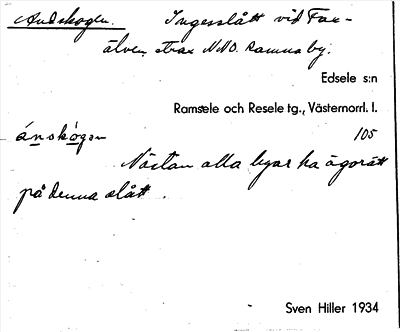 Andskogen. Ingesslått vid Fax-
älven, strax NNO. Ramna by.
Edsele s:n
Ramsele och Resele tg., Västernorrl. l.
ánskògen 105
Nästan alla byar ha ägorätt
på denna slått.
Sven Hiller 1934